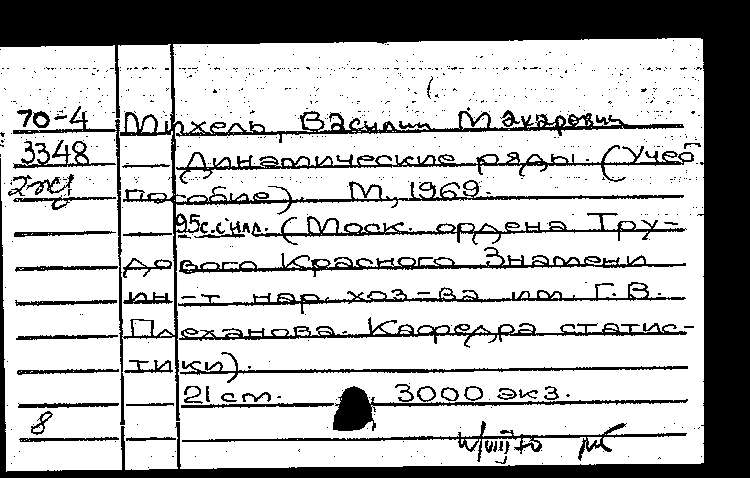 70-4 Михель, Василий Макарович
3348 Динамические ряды. (Учеб.
пособие). М., 1969.
95с. с илл. (Моск. ордена Тру-
дового Красного Знамени
ин-т нар. хоз-ва им. Г.В.
Плеханова. Кафедра статис-
тики).
21 см. 3000 экз.
8